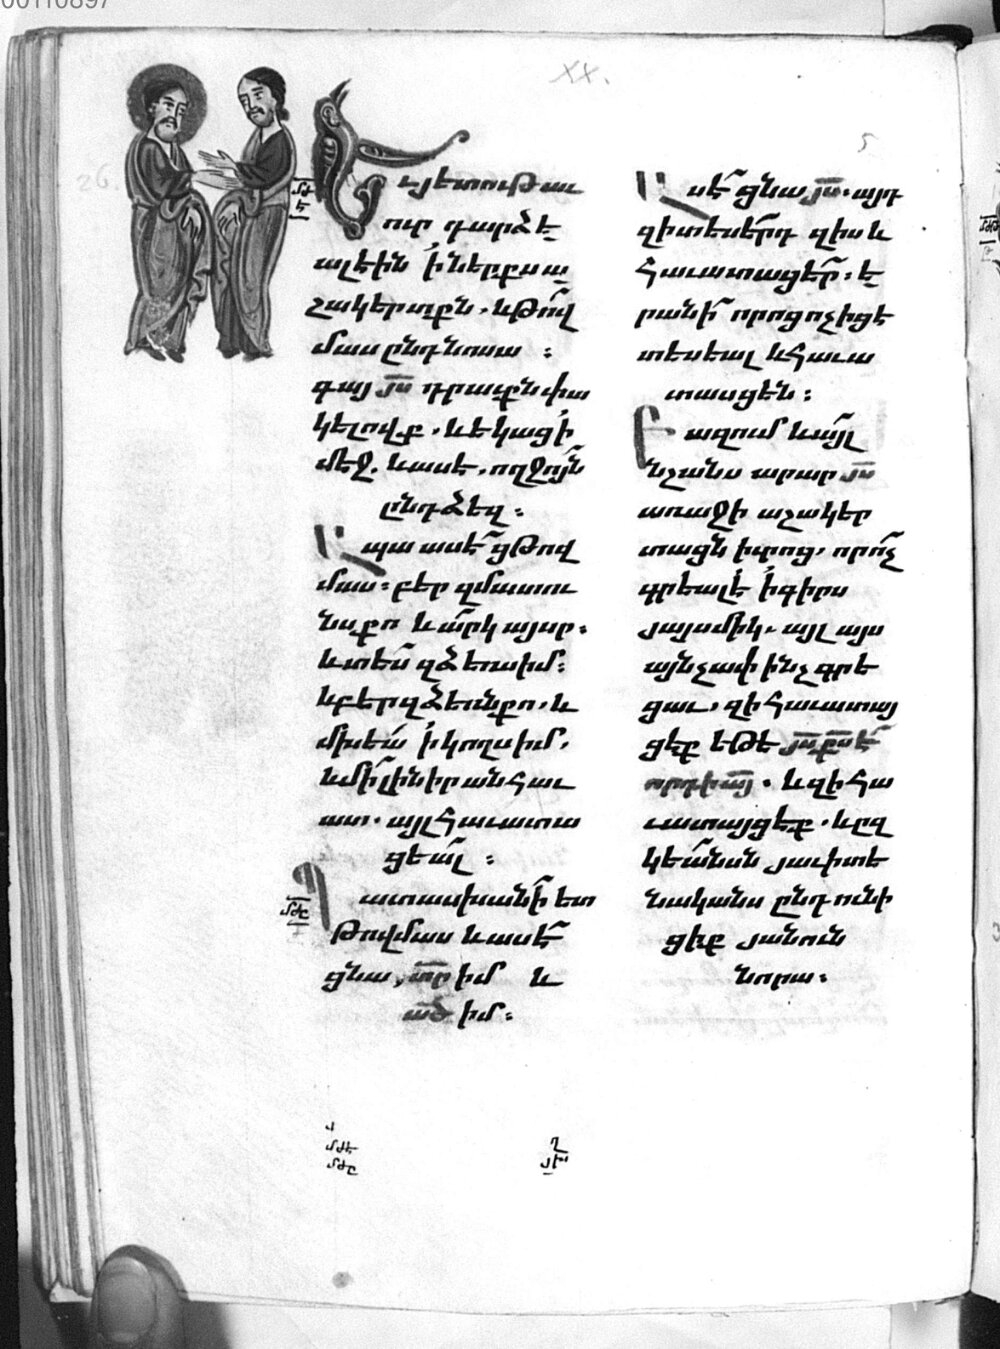 00110897
XX.
26.
5
Եւ յետ ութ աւ
ուր դարձե
ալ էին ի ներքս ա
շակերտքն. և թով
մաս ընդ նոսա :
գայ յս դրաւքն փա
կելովք. և եկաց ի
մէջ. և ասէ. ողջոյն
ընդ ձեզ :
Ապա ասէ ցթով
մաս : բեր զմատու
նս քո և արկ այսր :
և տես զձեռս իմ :
և բեր զձեռն քո. և
մխեա ի կողս իմ.
և մի լինիր անհաւ
ատ. այլ հաւատա
ցեալ :
Պատասխանի ետ
թովմաս և ասէ
ցնա, տր իմ և
ած իմ :
մժե
մժը
Ասէ ցնա յս. այդ
զի տեսեր դ զիս և
հաւատացեր : ե
րանի որոց ոչ իցէ
տեսեալ և հաւա
տասցեն :
Բազում և այլ
նշանս արար յս
առաջի աշակեր
տացն իւրոց, որ ոչ
գրեալ է ի գիրս
յայսմիկ. այլ այս
այնչափ ինչ գրե
ցաւ. զի հաւատայ
ցէք եթե յս քս է
որդի այ. և զի հա
ւատայցէք. և ըզ
կեանսն յաւիտե
նականս ընդունի
ցիք յանուն
նորա :
մժե
մժը